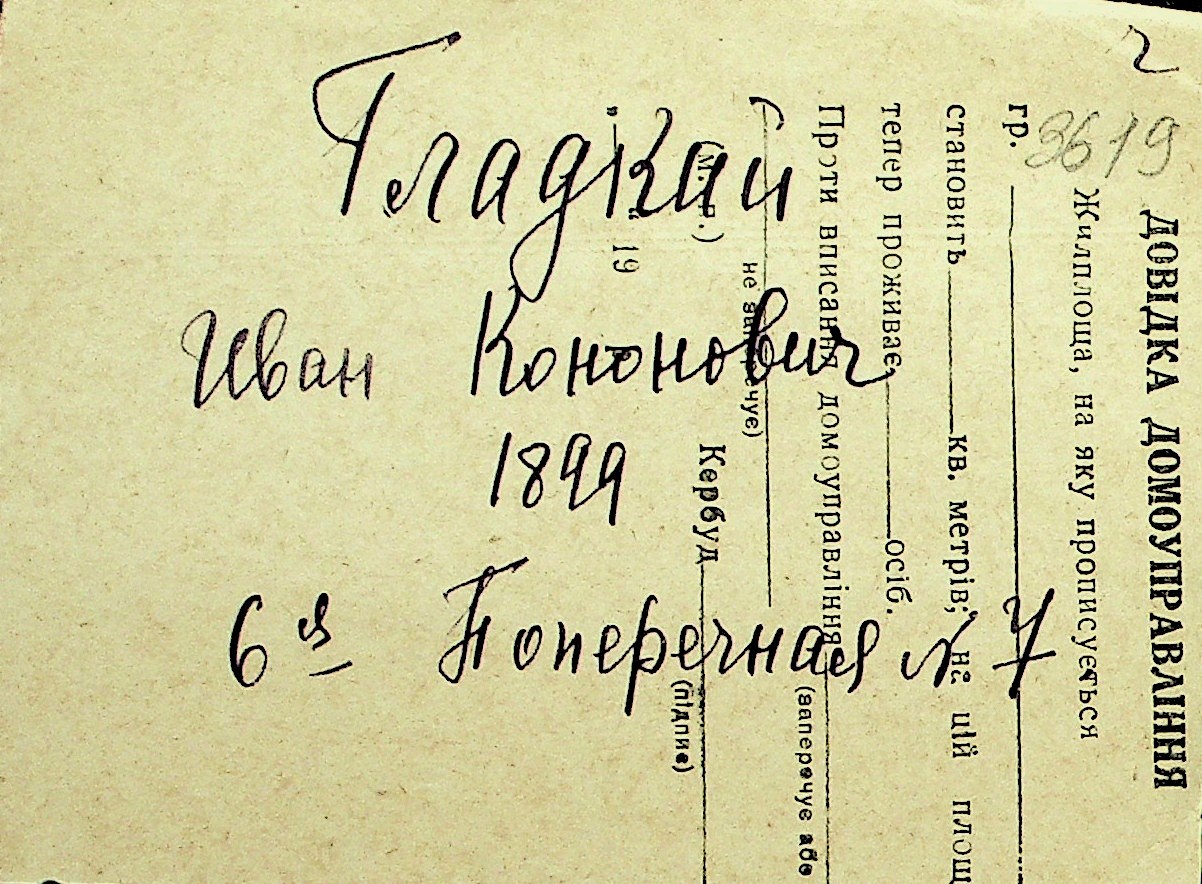 г
3619
Гладкий
Иван Кононович
1899
6я Поперечная № 7
ДОВІДКА ДОМОУПРАВЛІННЯ
Жилплоща, на яку прописується
гр.
становить кв. метрів; на цій площ
тепер проживає осіб.
Проти вписання домоуправління
(заперечує або
не заперечує)
(м. п.)
Кербуд
(підпис)
„ “ 19